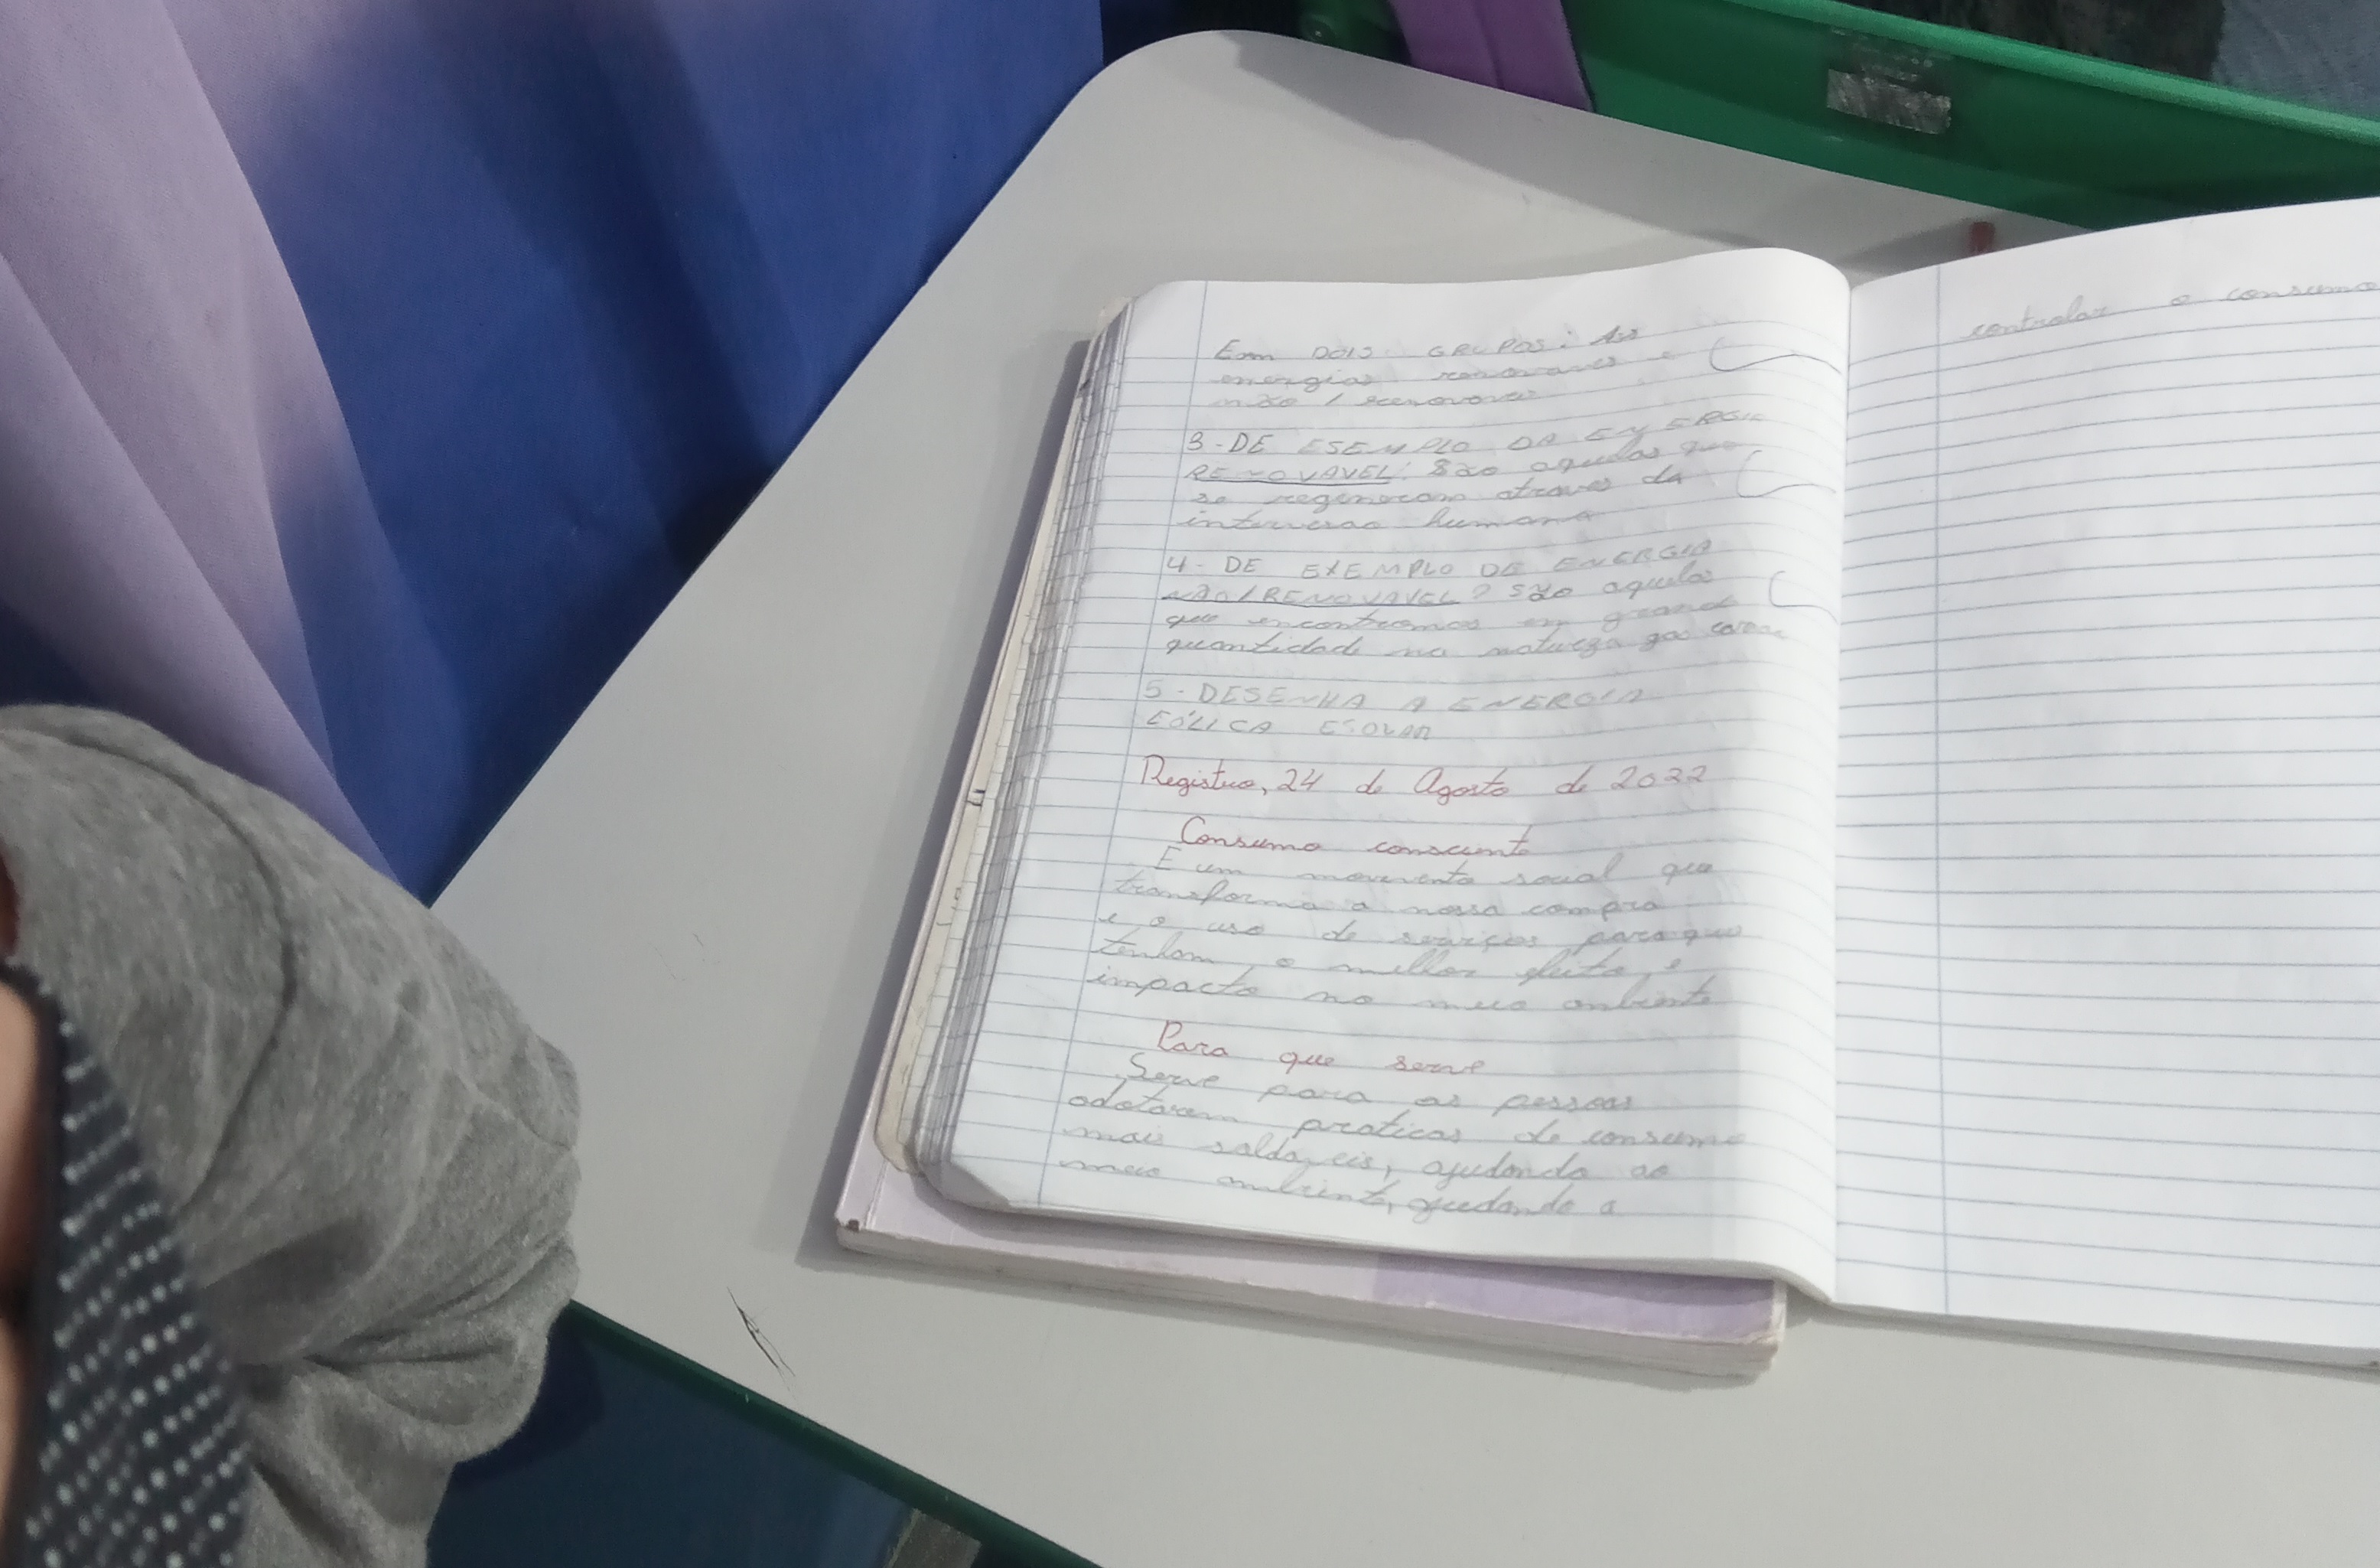 Em DOIS GRUPOS: As
energias renovaveis e
não / renovaveis
3-DE ESEMPLO DA ENERGIA
RENOVAVEL: São aquelas que
se regeneram atraves da
interverao humana
4- DE EXEMPLO DE ENERGIA
NÃO/RENOVAVEL? São aquelas
que encontramos em grand
quantidade na natureza gas
5- DESENHA A ENERGIA
EÓLICA ESOLAR
Registro, 24 de Agosto de 2022
Consumo consciente
É um movimento social que
transforma a nossa compra
e o uso de serviços para que
tenham o melhor efeito, e
impacto no meio ambiente
Para que serve
Serve para as pessoas
adotarem praticas de consumo
mais saldaveis, ajudando ao
meio ambiente, ajudando a
controlar o consumo